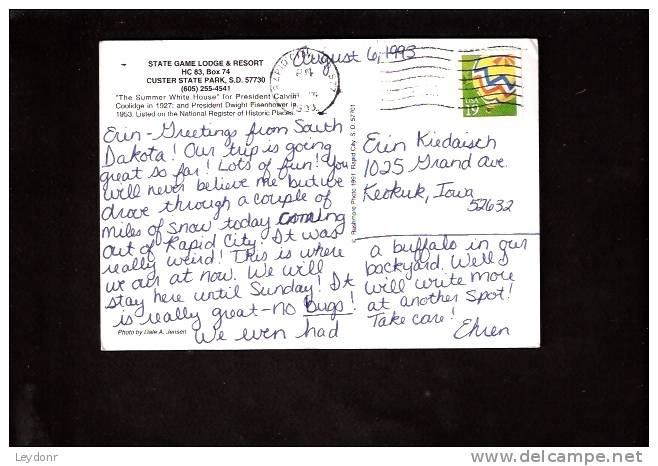 STATE GAME LODGE & RESORT
HC 83, Box 74
CUSTER STATE PARK, S.D. 57730
(605) 255-4541
"The Summer White House" for President Calvin
Coolidge in 1927; and President Dwight Eisenhower in
1953. Listed on the National Register of Historic Places.
August 6, 1993
RAPID CITY
USA
19
Erin - Greetings from South
Dakota! Our trip is going
great so far! Lots of fun! You
will never believe me but we
drove through a couple of
miles of snow today coming
out of Rapid City. It was
really weird! This is where
we are at now. We will
stay here until Sunday! It
is really great - no bugs!
We even had
a buffalo in our
backyard. Well I
will write more
at another spot!
Take care!
Ehren
Erin Kiedaisch
1025 Grand Ave.
Keokuk, Iowa
52632
Rushmore Photo 1991 Rapid City, S.D. 57701
Photo by Dale A. Jensen
Leydonr
www.delcampe.net